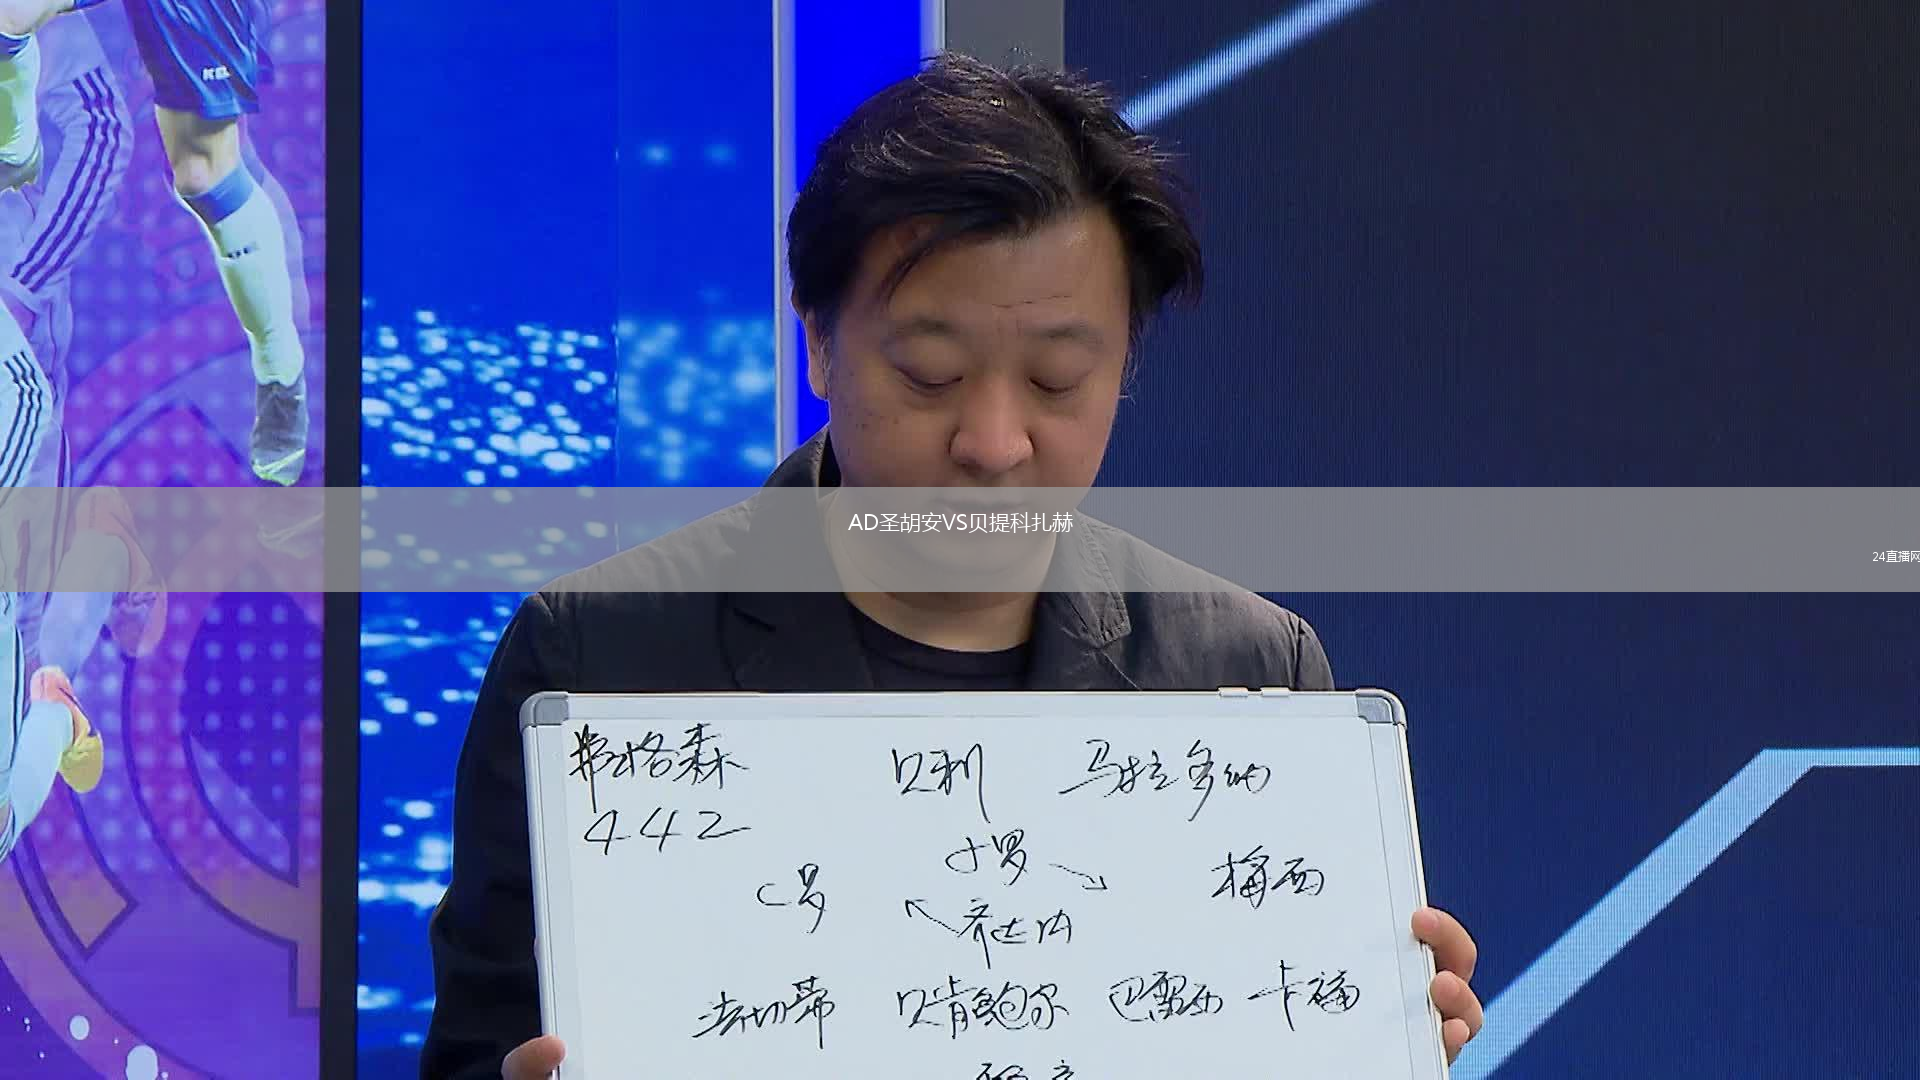 AD圣胡安VS贝提科扎赫
24直播网
弗格森 贝利 马拉多纳
442
小罗
C罗 梅西
齐达内
法切蒂 贝肯鲍尔 巴雷西 卡福